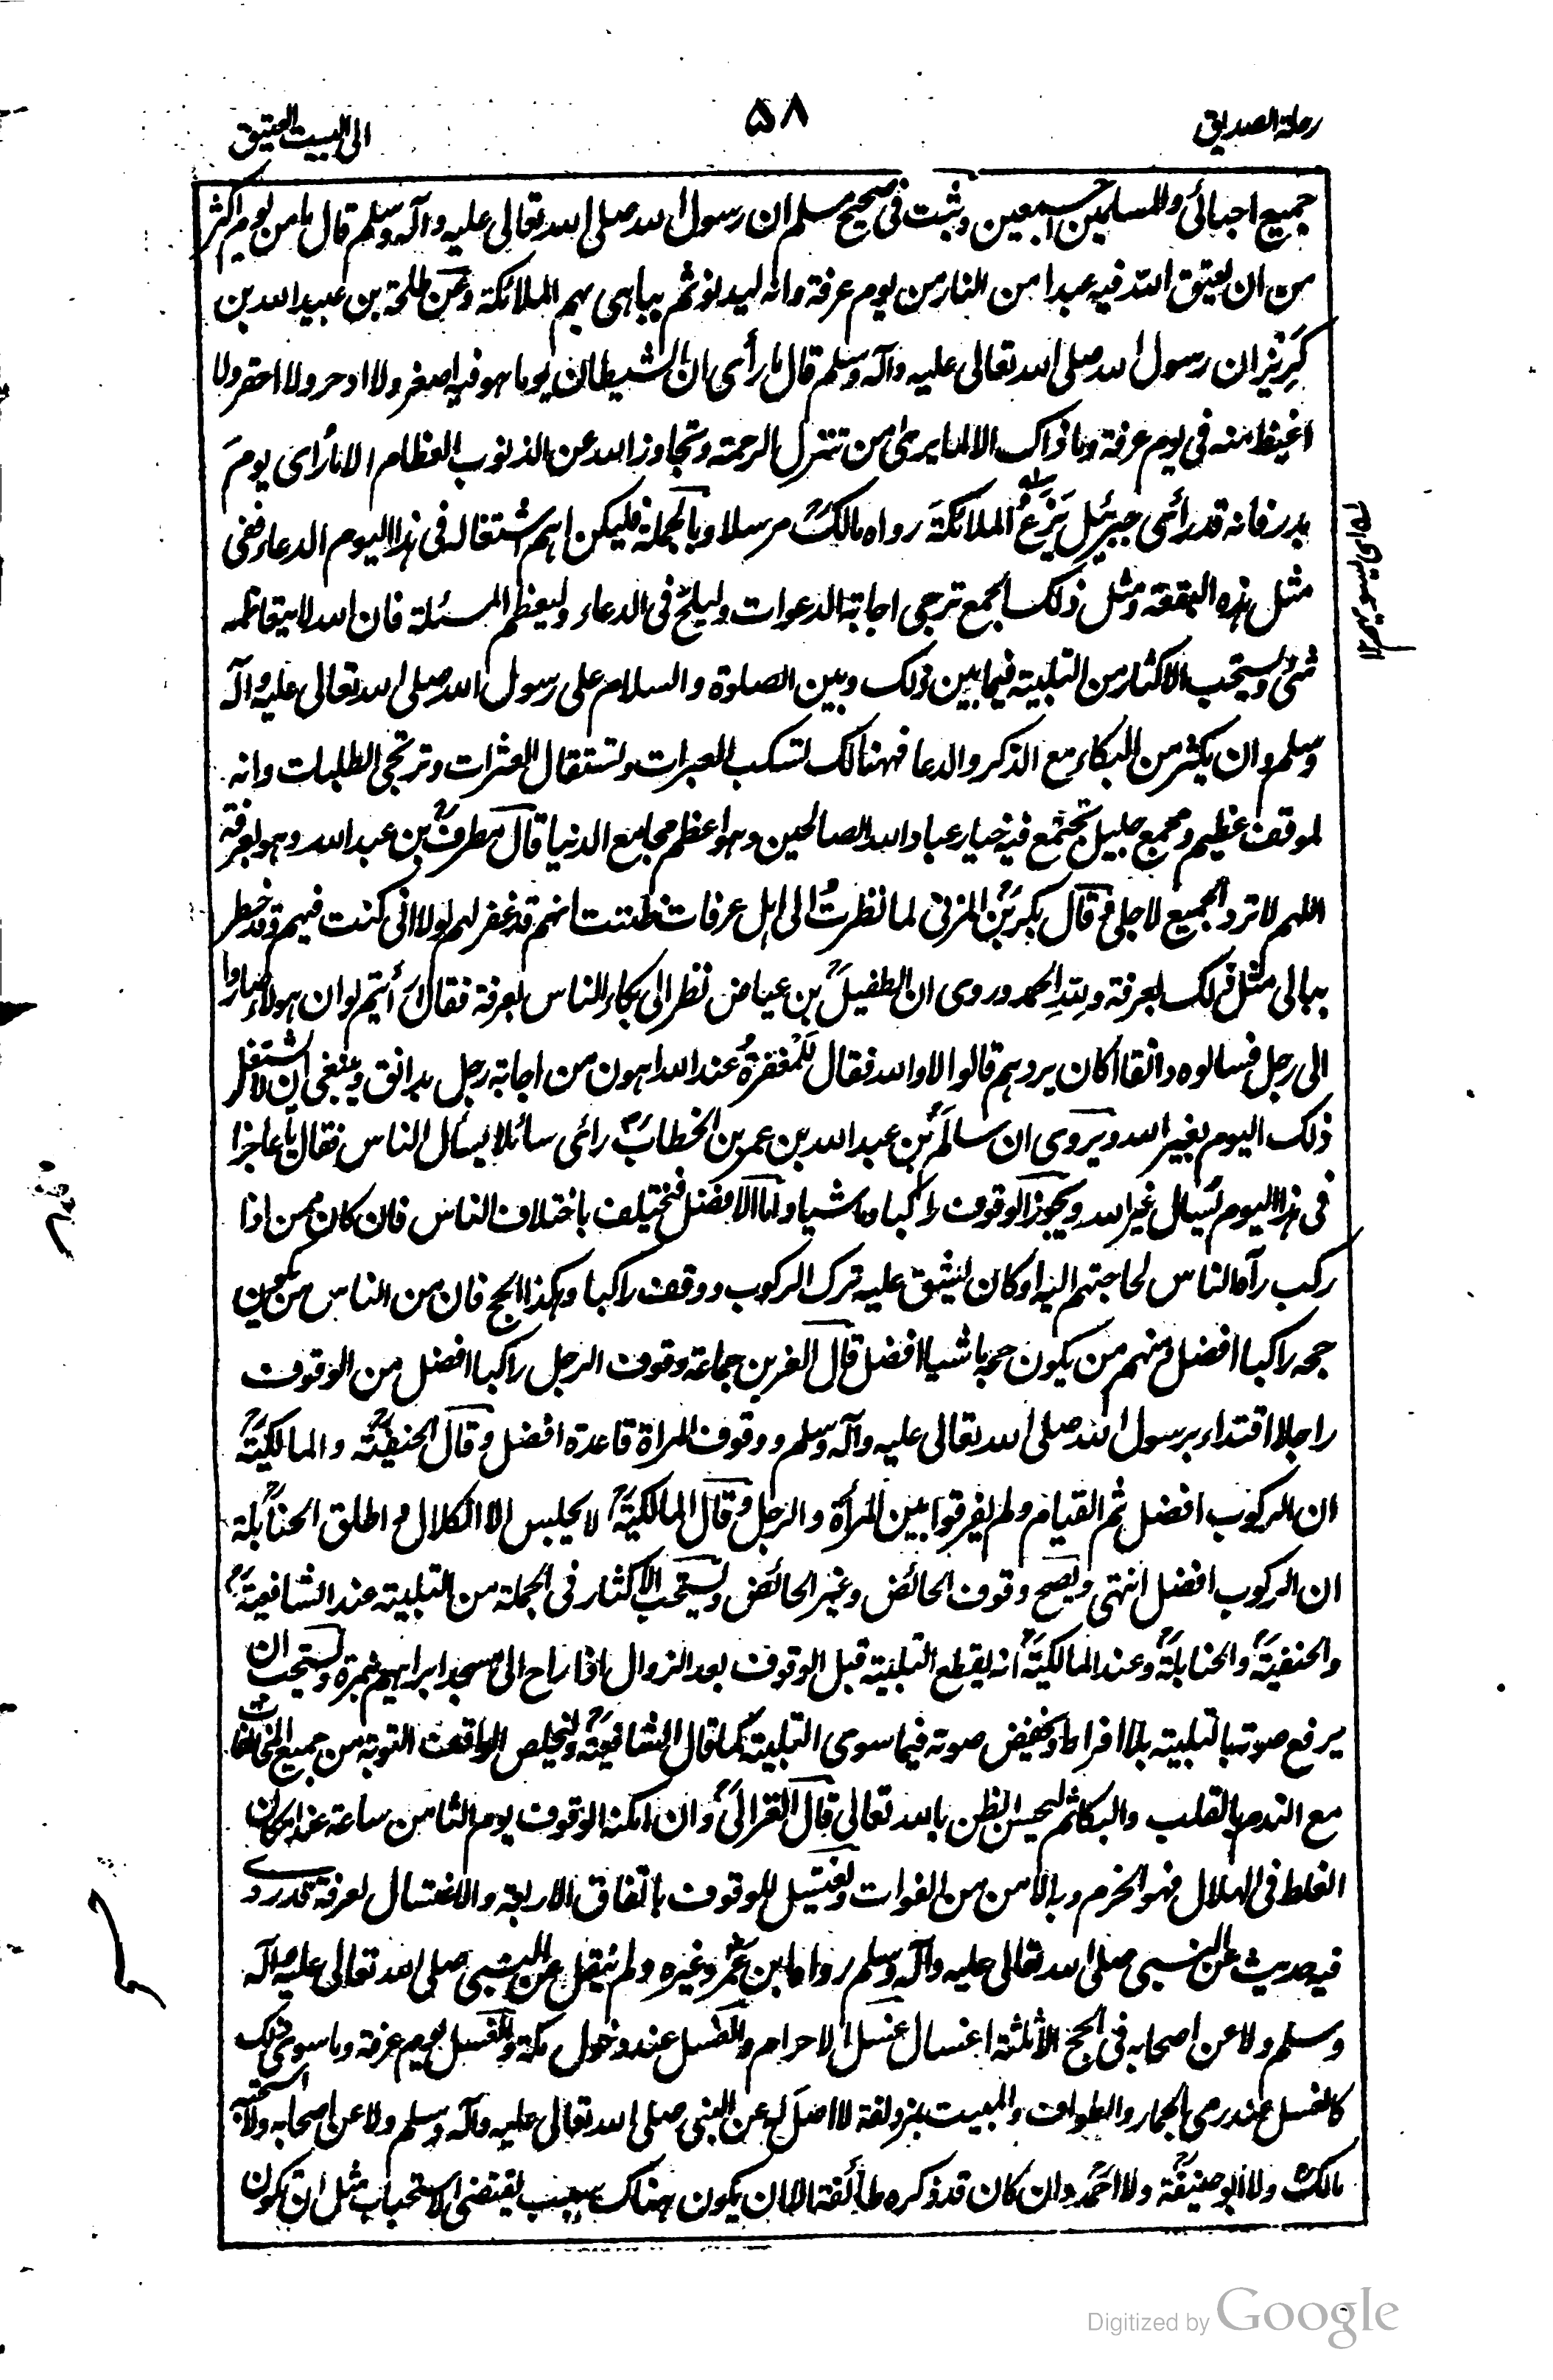 رحلة الصديق
۵۸
الى البيت العتيق
جميع احبائى وللمسلمين اجمعين وثبت فى صحيح مسلم ان رسول الله صلى الله تعالى عليه وآله وسلم قال ما من يوم اكثر
من ان يعتق الله فيه عبدا من النار من يوم عرفة وانه ليدنو ثم يباهى بهم الملائكة وعن طلحة بن عبيد الله بن
كَرِيْز ان رسول الله صلى الله تعالى عليه وآله وسلم قال ما رأى ان الشيطان يوما هو فيه اصغر ولا ادحر ولا احقر ولا
اغيظ منه فى يوم عرفة وما ذاك الا لما يرىٰ من تنزل الرحمة وتجاوز الله عن الذنوب العظام الا ما رُاى يومَ
بدر فانه قد رأى جبرئيل يَزَعُ الملائكةَ رواه مالكؒ مرسلا وبالجملة فليكن اهم اشتغاله فى هذا اليوم الدعاء ففى
مثل هذه البقعة ومثل ذلك الجمع ترجى اجابة الدعوات وليلح فى الدعاء وليعظم المسئلة فان الله لا يتعاظمه
شئ ويستحب الاكثار من التلبية فيما بين ذلك وبين الصلوة والسلام على رسول الله صلى الله تعالى عليه وآله
وسلم وان يكثر من البكاء مع الذكر والدعا فهنالك تسكب العبرات وتستقال العثرات وترتجى الطلبات وانه
لموقف عظيم ومجمع جليل تجتمع فيه خيار عباد الله الصالحين وهو اعظم مجامع الدنيا قال مطرفؒ بن عبد الله وهو بعرفة
اللهم لا ترد الجميع لاجلى وقال بكرؒ المزنى لما نظرتُ الى اهل عرفات ظننت انهم قد غفر لهم لولا انى كنت فيهم وقد خطر
ببالى مثل ذلك بعرفة ولله الحمد وروى ان الطفيلؒ بن عياض نظر الى بكاء الناس بعرفة فقال أرأيتم لو ان هولاء صاروا
الى رجل فسالوه دانقا اكان يردهم قالوا لا والله فقال لَلمغفرةُ عند الله اهون من اجابة رجل بدانق وينبغى ان لا يشتغل
ذلك اليوم بغير الله ويروى ان سالمؒ بن عبد الله بن عمر بن الخطابؓ رائى سائلا يسأل الناس فقال يا عاجزا
فى هذا اليوم يُسأل غير الله ويجوز الوقوف راكبا وماشيا واما الافضل فيختلف باختلاف الناس فان كان ممن اذا
ركب رآه الناس لحاجتهم اليه او كان يشق عليه ترك الركوب ووقف راكبا وهكذا الحج فان من الناس من يكون
حجه راكبا افضل ومنهم من يكون حجه ماشيا افضل قال العز بن جماعة وقوف الرجل راكبا افضل من الوقوف
راجلا اقتداء برسول الله صلى الله تعالى عليه وآله وسلم ووقوف المراة قاعدة افضل وقال الحنفيةؒ والمالكيةؒ
ان الركوب افضل ثم القيام ولم يفرقوا بين المرأة والرجل وقال المالكيةؒ لا يجلس الا الكلال واطلق الحنابلةؒ
ان الركوب افضل انتهى ويصح وقوف الحائض وغير الحائض ويستحب الاكثار فى الجملة من التلبية عند الشافعيةؒ
والحنفيةؒ والحنابلةؒ وعند المالكيةؒ انه يقطع التلبية قبل الوقوف بعد الزوال اذا راح الى مسجد ابراهيم بنمرة ويستحب ان
يرفع صوته بالتلبية بلا افراط ويخفض صوته فيما سوى التلبية كما قال الشافعيةؒ وليخلص الواقف التوبة من جميع المخالفات
مع الندم بالقلب والبكا ثم ليحسن الظن بالله تعالى قال الغزالىؒ وان امكنه الوقوف يوم الثامن ساعة عند امكان
الغلط فى الهلال فهو الحزم وبالامن من الفوات ويغتسل للوقوف باتفاق الاربعة والاغتسال لعرفة قد روى
فيه حديث عن النبى صلى الله تعالى عليه وآله وسلم رواه ابن عمرؓ وغيره ولم ينقل عن النبى صلى الله تعالى عليه وآله
وسلم ولا عن اصحابه فى الحج الا ثلثة اغسال غسل الاحرام والغسل عند دخول مكة والغسل يوم عرفة وما سوى ذلك
كالغسل عند رمى الجمار والطواف والمبيت بمزدلفة لا اصل له عن النبى صلى الله تعالى عليه وآله وسلم ولا عن اصحابه ولا استحبه
مالكؒ ولا ابو حنيفةؒ ولا احمدؒ وان كان قد ذكره طائفة الا ان يكون هناك سبب يقتضى الاستحباب مثل ان تكون
Digitized by Google